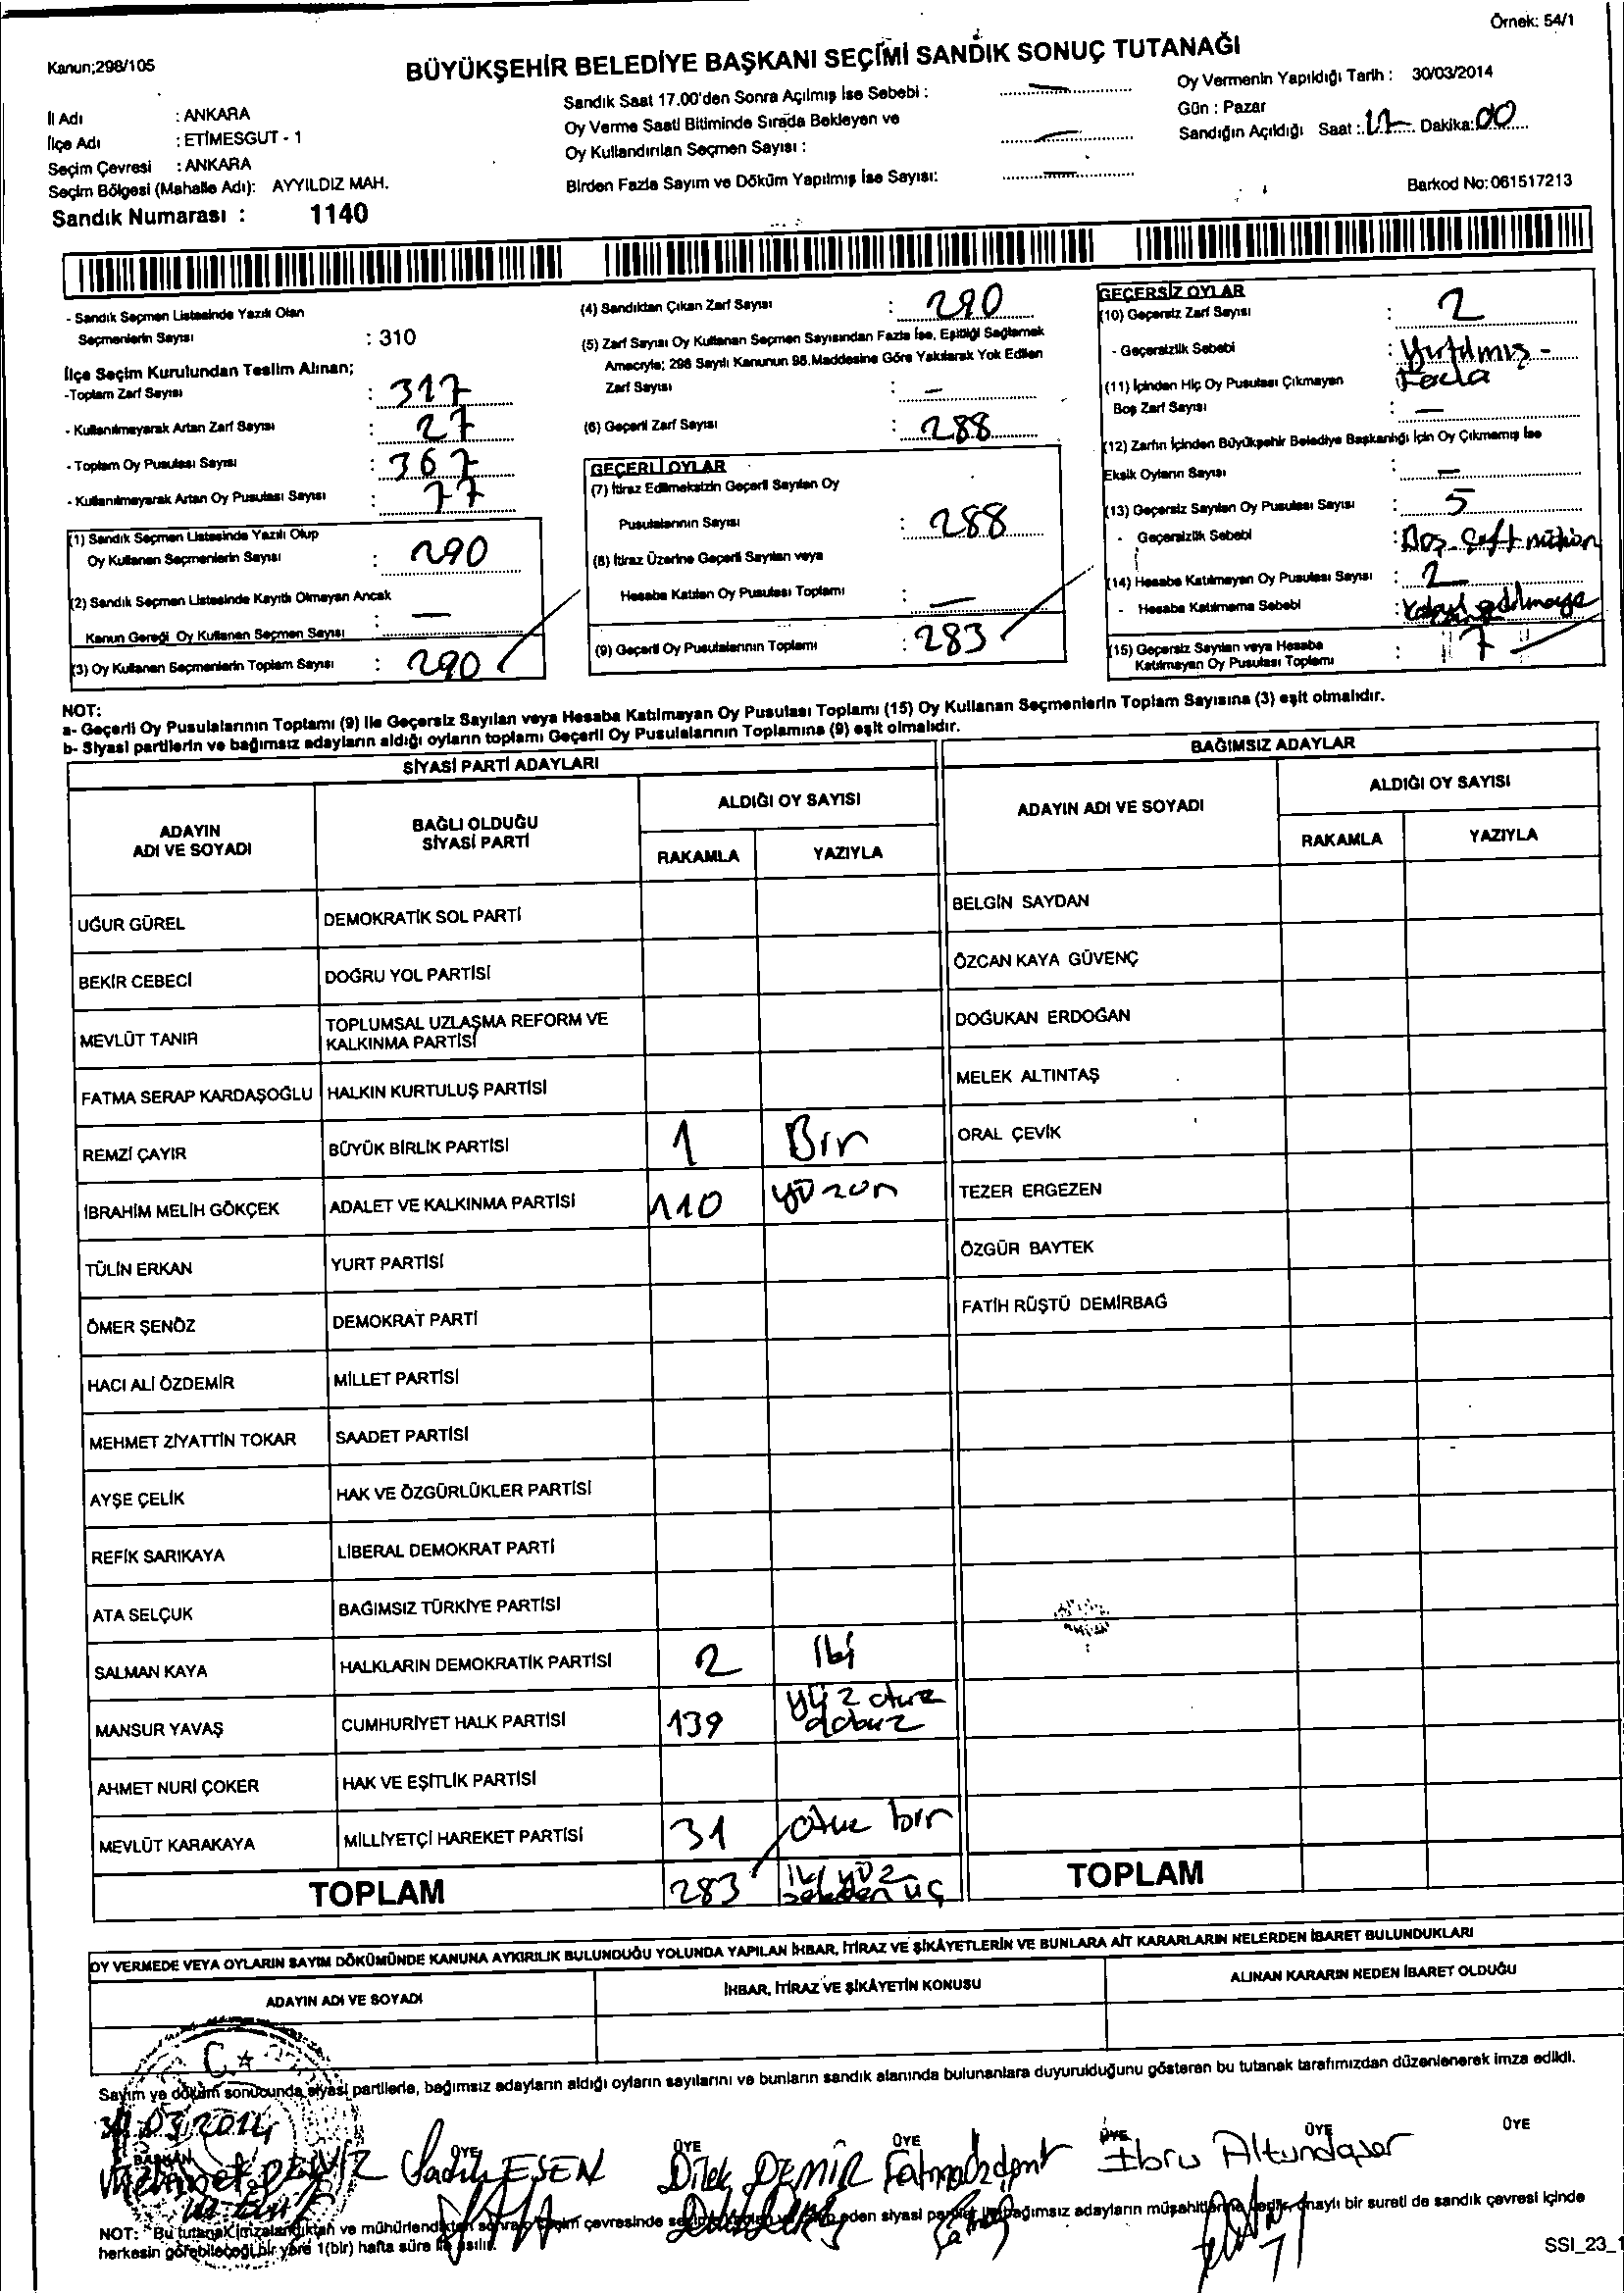 Örnek: 54/1
Kanun;298/105
BÜYÜKŞEHİR BELEDİYE BAŞKANI SEÇİMİ SANDIK SONUÇ TUTANAĞI
İl Adı : ANKARA
İlçe Adı : ETİMESGUT - 1
Seçim Çevresi : ANKARA
Seçim Bölgesi (Mahalle Adı): AYYILDIZ MAH.
Sandık Numarası : 1140
Sandık Saat 17.00'den Sonra Açılmış İse Sebebi :
Oy Verme Saati Bitiminde Sırada Bekleyen ve
Oy Kullandırılan Seçmen Sayısı :
Birden Fazla Sayım ve Döküm Yapılmış İse Sayısı:
Oy Vermenin Yapıldığı Tarih : 30/03/2014
Gün : Pazar
Sandığın Açıldığı Saat : 17 Dakika: 00
Barkod No: 061517213
- Sandık Seçmen Listesinde Yazılı Olan
Seçmenlerin Sayısı : 310
İlçe Seçim Kurulundan Teslim Alınan;
-Toplam Zarf Sayısı : 317
- Kullanılmayarak Artan Zarf Sayısı : 27
- Toplam Oy Pusulası Sayısı : 367
- Kullanılmayarak Artan Oy Pusulası Sayısı : 77
(1) Sandık Seçmen Listesinde Yazılı Olup
Oy Kullanan Seçmenlerin Sayısı : 290
(2) Sandık Seçmen Listesinde Kayıtlı Olmayan Ancak
Kanun Gereği Oy Kullanan Seçmen Sayısı : —
(3) Oy Kullanan Seçmenlerin Toplam Sayısı : 290
(4) Sandıktan Çıkan Zarf Sayısı : 290
(5) Zarf Sayısı Oy Kullanan Seçmen Sayısından Fazla İse, Eşitliği Sağlamak
Amacıyla; 298 Sayılı Kanunun 98.Maddesine Göre Yakılarak Yok Edilen
Zarf Sayısı : —
(6) Geçerli Zarf Sayısı : 288
GEÇERLİ OYLAR
(7) İtiraz Edilmeksizin Geçerli Sayılan Oy
Pusulalarının Sayısı : 288
(8) İtiraz Üzerine Geçerli Sayılan veya
Hesaba Katılan Oy Pusulası Toplamı : —
(9) Geçerli Oy Pusulalarının Toplamı : 283
GEÇERSİZ OYLAR
(10) Geçersiz Zarf Sayısı : 2
- Geçersizlik Sebebi : Yırtılmış -
Fazla
(11) İçinden Hiç Oy Pusulası Çıkmayan
Boş Zarf Sayısı : —
(12) Zarfın İçinden Büyükşehir Belediye Başkanlığı İçin Oy Çıkmamış İse
Eksik Oyların Sayısı : —
(13) Geçersiz Sayılan Oy Pusulası Sayısı : 5
- Geçersizlik Sebebi : Boş - Çift
(14) Hesaba Katılmayan Oy Pusulası Sayısı : 2
- Hesaba Katılmama Sebebi :
(15) Geçersiz Sayılan veya Hesaba
Katılmayan Oy Pusulası Toplamı : 7
NOT:
a- Geçerli Oy Pusulalarının Toplamı (9) ile Geçersiz Sayılan veya Hesaba Katılmayan Oy Pusulası Toplamı (15) Oy Kullanan Seçmenlerin Toplam Sayısına (3) eşit olmalıdır.
b- Siyasi partilerin ve bağımsız adayların aldığı oyların toplamı Geçerli Oy Pusulalarının Toplamına (9) eşit olmalıdır.
SİYASİ PARTİ ADAYLARI
ADAYIN ADI VE SOYADI BAĞLI OLDUĞU SİYASİ PARTİ ALDIĞI OY SAYISI
RAKAMLA YAZIYLA
UĞUR GÜREL DEMOKRATİK SOL PARTİ
BEKİR CEBECİ DOĞRU YOL PARTİSİ
MEVLÜT TANIR TOPLUMSAL UZLAŞMA REFORM VE KALKINMA PARTİSİ
FATMA SERAP KARDAŞOĞLU HALKIN KURTULUŞ PARTİSİ
REMZİ ÇAYIR BÜYÜK BİRLİK PARTİSİ 1 Bir
İBRAHİM MELİH GÖKÇEK ADALET VE KALKINMA PARTİSİ 110 yüzon
TÜLİN ERKAN YURT PARTİSİ
ÖMER ŞENÖZ DEMOKRAT PARTİ
HACI ALİ ÖZDEMİR MİLLET PARTİSİ
MEHMET ZİYATTİN TOKAR SAADET PARTİSİ
AYŞE ÇELİK HAK VE ÖZGÜRLÜKLER PARTİSİ
REFİK SARIKAYA LİBERAL DEMOKRAT PARTİ
ATA SELÇUK BAĞIMSIZ TÜRKİYE PARTİSİ
SALMAN KAYA HALKLARIN DEMOKRATİK PARTİSİ 2 iki
MANSUR YAVAŞ CUMHURİYET HALK PARTİSİ 139 yüz otuz dokuz
AHMET NURİ ÇOKER HAK VE EŞİTLİK PARTİSİ
MEVLÜT KARAKAYA MİLLİYETÇİ HAREKET PARTİSİ 31 otuz bir
TOPLAM 283 iki yüz seksen üç
BAĞIMSIZ ADAYLAR
ADAYIN ADI VE SOYADI ALDIĞI OY SAYISI
RAKAMLA YAZIYLA
BELGİN SAYDAN
ÖZCAN KAYA GÜVENÇ
DOĞUKAN ERDOĞAN
MELEK ALTINTAŞ
ORAL ÇEVİK
TEZER ERGEZEN
ÖZGÜR BAYTEK
FATİH RÜŞTÜ DEMİRBAĞ
TOPLAM
OY VERMEDE VEYA OYLARIN SAYIM DÖKÜMÜNDE KANUNA AYKIRILIK BULUNDUĞU YOLUNDA YAPILAN İHBAR, İTİRAZ VE ŞİKÂYETLERİN VE BUNLARA AİT KARARLARIN NELERDEN İBARET BULUNDUKLARI
ADAYIN ADI VE SOYADI İHBAR, İTİRAZ VE ŞİKÂYETİN KONUSU ALINAN KARARIN NEDEN İBARET OLDUĞU
Sayım ve döküm sonucunda siyasi partilerle, bağımsız adayların aldığı oyların sayılarını ve bunların sandık alanında bulunanlara duyurulduğunu gösteren bu tutanak tarafımızdan düzenlenerek imza edildi.
30.03.2014
BAŞKAN ÜYE ÜYE ÜYE ÜYE ÜYE ÜYE
Mehmet DENİZ Sadık ESEN Dilek DEMİR Fatma Ebru
NOT: Bu tutanak imzalandıktan ve mühürlendikten sonra seçim çevresinde eden siyasi bağımsız adayların müşahitlerine onaylı bir sureti de sandık çevresi içinde
herkesin görebileceği bir yere 1(bir) hafta süre ile asılır.
SSI_23_1